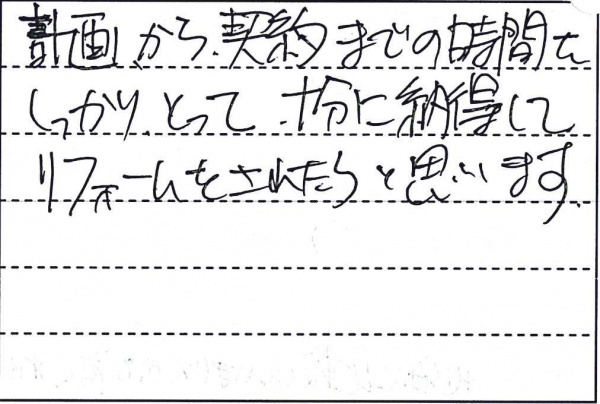 計画から契約までの時間を
しっかりとって、十分に納得して
リフォームをされたらと思います。